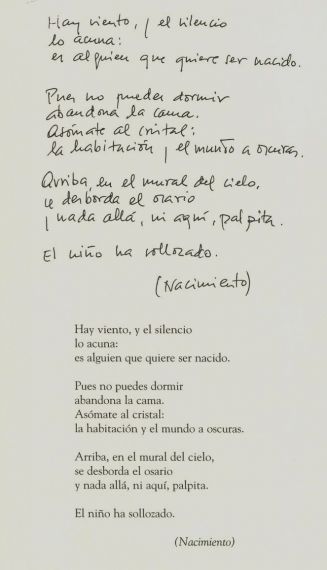 Hay viento, y el silencio
lo acuna:
es alguien que quiere ser nacido.
Pues no puedes dormir
abandona la cama.
Asómate al cristal:
la habitación y el mundo a oscuras.
Arriba, en el mural del cielo,
se desborda el osario
y nada allá, ni aquí, palpita.
El niño ha sollozado.
(Nacimiento)
Hay viento, y el silencio
lo acuna:
es alguien que quiere ser nacido.
Pues no puedes dormir
abandona la cama.
Asómate al cristal:
la habitación y el mundo a oscuras.
Arriba, en el mural del cielo,
se desborda el osario
y nada allá, ni aquí, palpita.
El niño ha sollozado.
(Nacimiento)